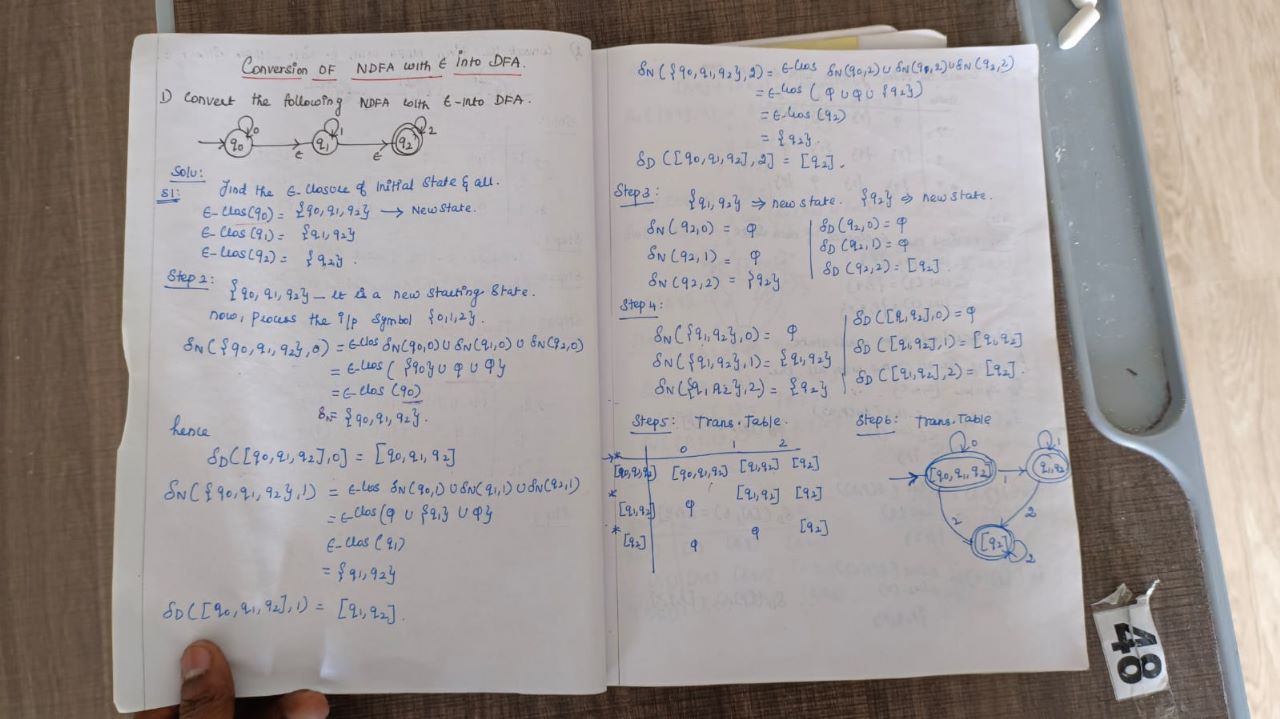 Conversion OF NDFA with ϵ into DFA.
1) Convert the following NDFA with ϵ-into DFA.
0 1 2
q0 q1 q2
ϵ ϵ
Solu:
S1: Find the ϵ-closure of initial State & all.
ϵ-clos(q0) = {q0,q1,q2} → New State.
ϵ-clos(q1) = {q1,q2}
ϵ-clos(q2) = {q2}
Step 2:
{q0,q1,q2} – it is a new starting State.
now, process the i/p symbol {0,1,2}.
δN({q0,q1,q2},0) = ϵ-clos δN(q0,0) ∪ δN(q1,0) ∪ δN(q2,0)
= ϵ-clos ( {q0} ∪ φ ∪ φ}
= ϵ-clos (q0)
δN = {q0,q1,q2}.
hence
δD([q0,q1,q2],0] = [q0,q1,q2]
δN({q0,q1,q2},1) = ϵ-clos δN(q0,1) ∪ δN(q1,1) ∪ δN(q2,1)
= ϵ-clos(φ ∪ {q1} ∪ φ}
ϵ-clos (q1)
= {q1,q2}
δD([q0,q1,q2],1) = [q1,q2].
δN({q0,q1,q2},2) = ϵ-clos δN(q0,2) ∪ δN(q1,2) ∪ δN(q2,2)
= ϵ-clos ( φ ∪ φ ∪ {q2})
= ϵ-clos (q2)
= {q2}
δD([q0,q1,q2],2] = [q2].
Step 3: {q1,q2} ⇒ new state. {q2} ⇒ new state.
δN(q2,0) = φ δD(q2,0) = φ
δN(q2,1) = φ δD(q2,1) = φ
δN(q2,2) = {q2} δD(q2,2) = [q2].
Step 4:
δN({q1,q2},0) = φ δD([q1,q2],0) = φ
δN({q1,q2},1) = {q1,q2} δD([q1,q2],1) = [q1,q2]
δN({q1,q2},2) = {q2} δD([q1,q2],2) = [q2].
Step5: Trans.Table. Step6: Trans.Table
0 1 2
→* [q0,q1,q2] [q0,q1,q2] [q1,q2] [q2]
* [q1,q2] φ [q1,q2] [q2]
* [q2] φ φ [q2]
0 1
[q0,q1,q2] 1 q1,q2
2 2
[q2] 2
48